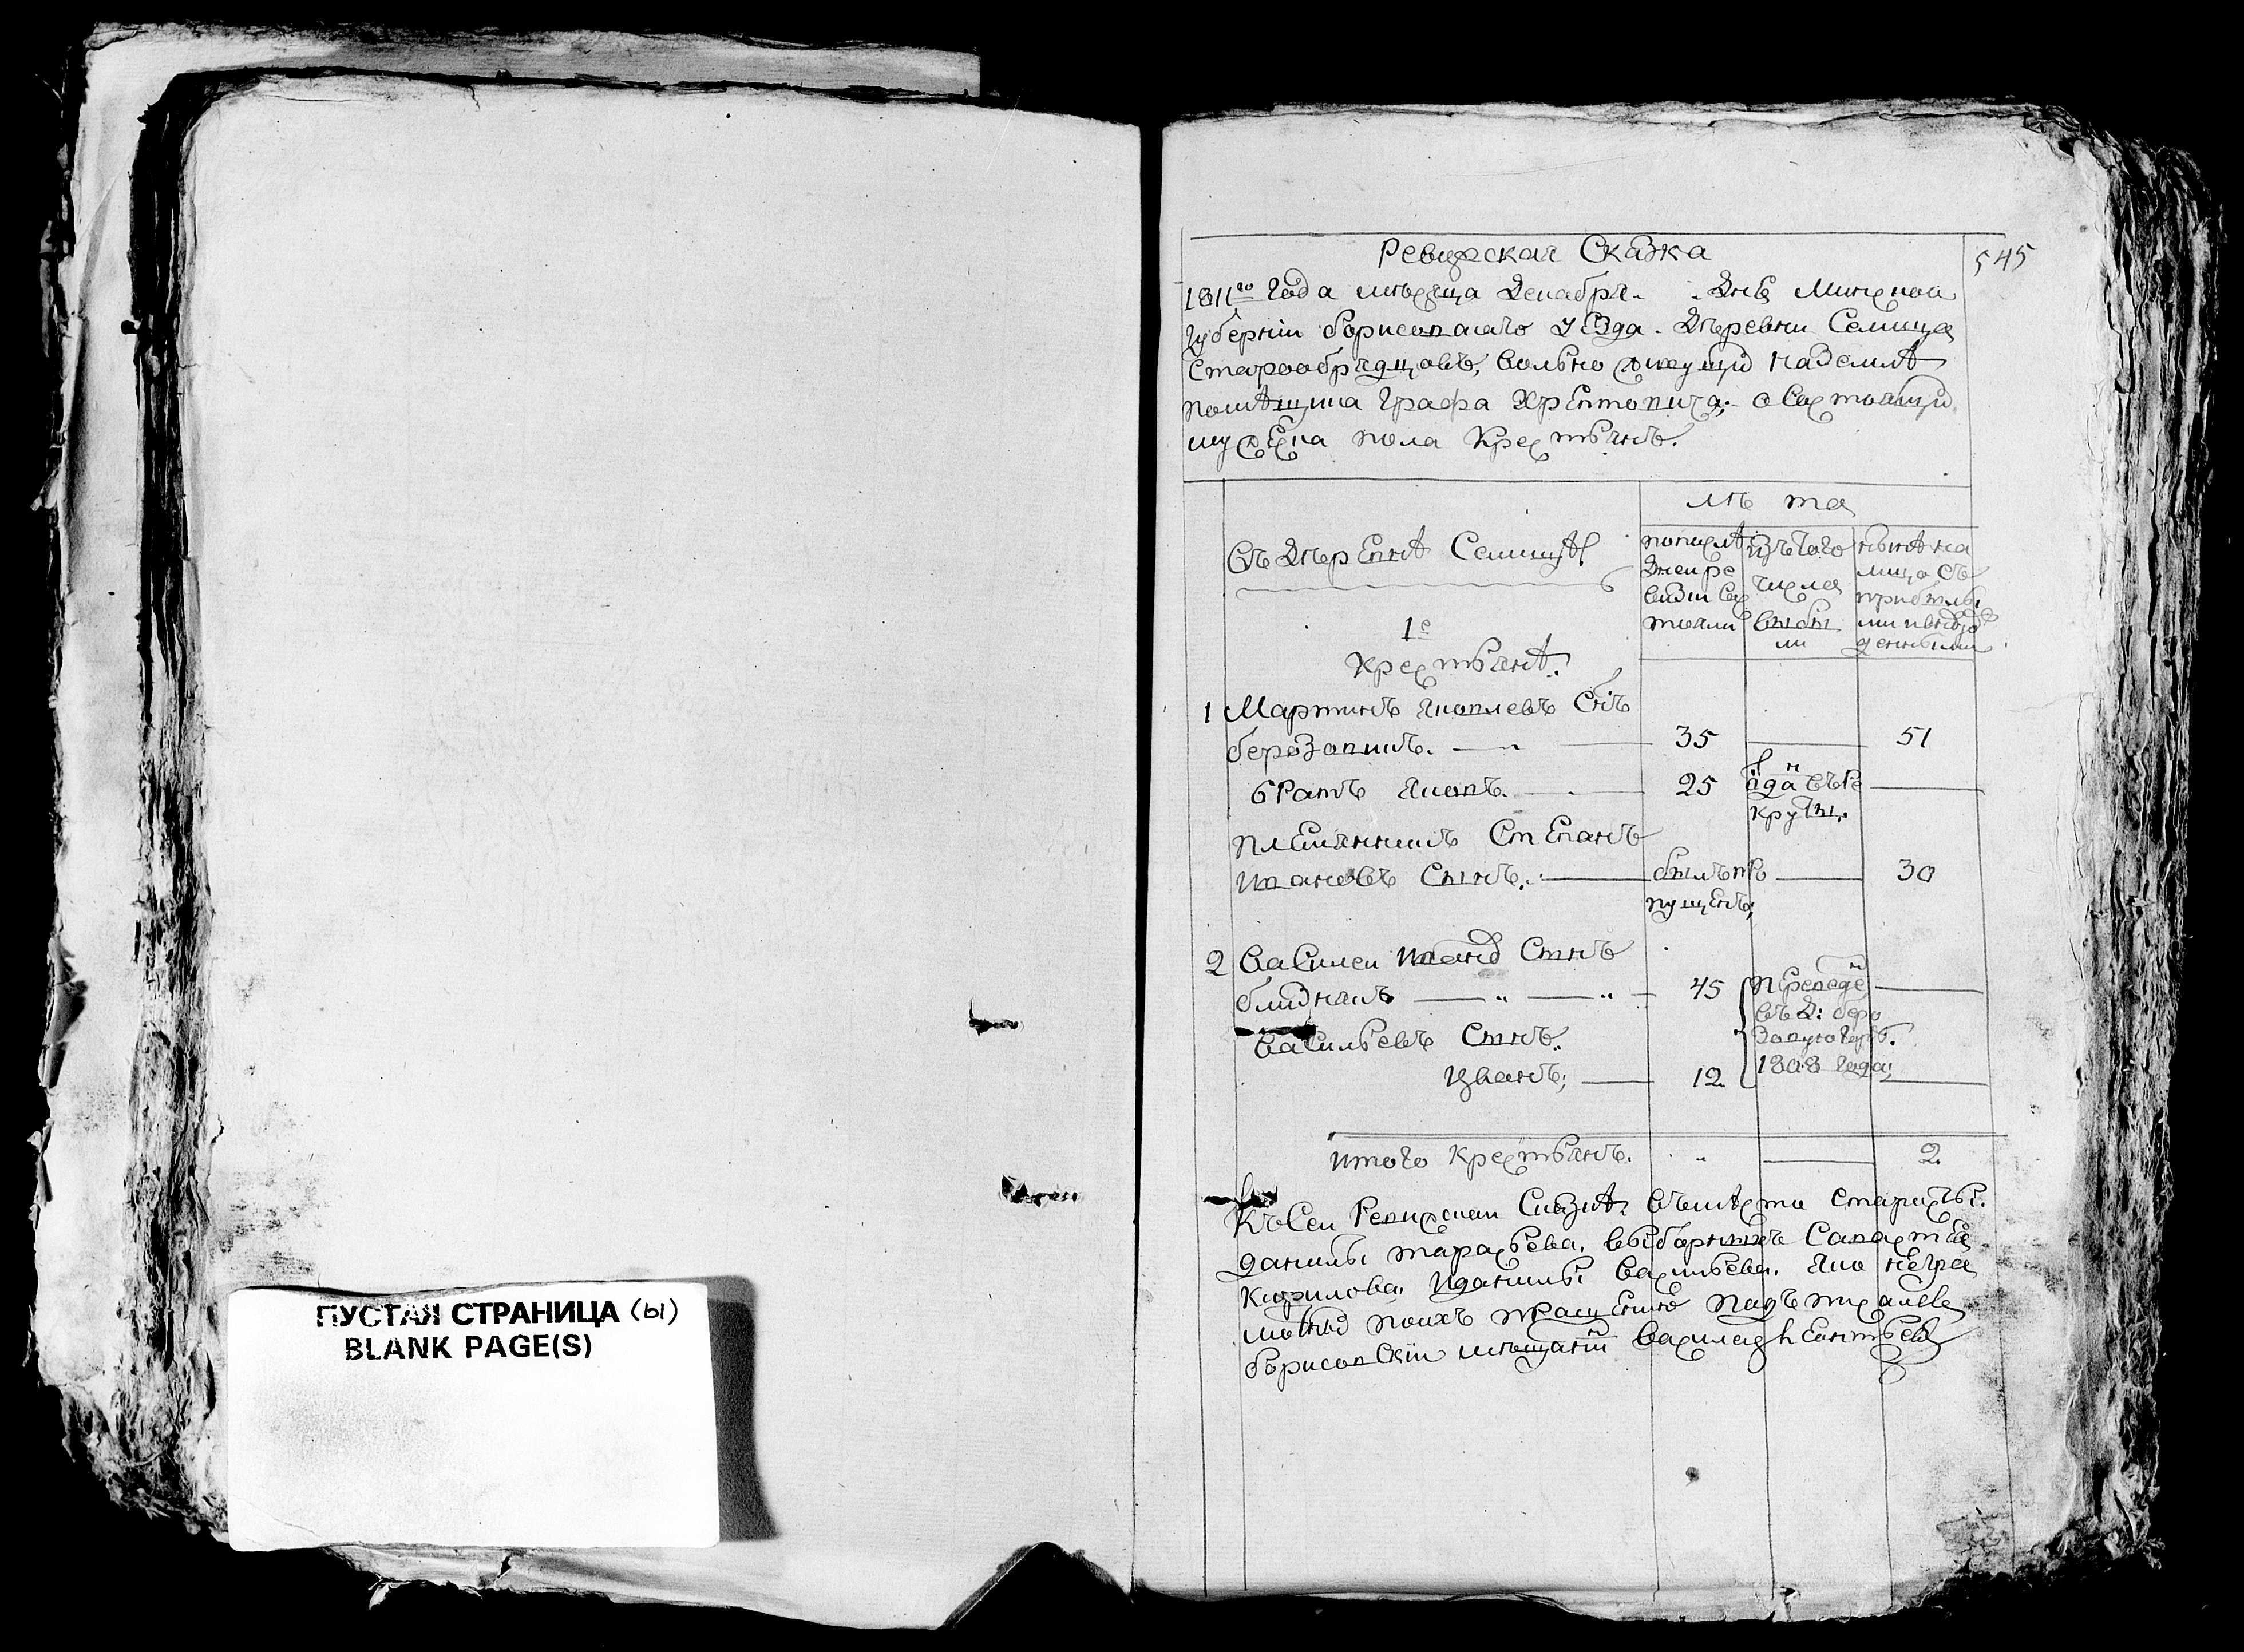 ПУСТАЯ СТРАНИЦА (ы)
BLANK PAGE(S)
545
Ревизская Сказка
1811го года мѣсяца Декабря. Дня Минской
Губерніи борисовскаго уезда. Дѣревни Селища
Старообрядцовъ, вольно живущих на Землѣ
помѣщика Графа Хрептовича, о состоящих
мужеска пола Крестьянъ.
лѣ та
Въ Дѣревнѣ Селищѣ
попослѣ
дней ре
визии сос
тояли
изъ того
числа
выбы
ли
нынѣ на
лицо съ
прибылы
ми и внов рож
денными
1е
Крестьянѣ.
1 Мартинъ Яковлевъ Снъ
берозовикъ. 35 51
братъ Яковъ. 25 отдан въ ре
круты.
племянникъ Степанъ
Ивановъ Сынъ. былъ про 30
пущенъ,
2 Василей Иванов Сынъ
близнакъ 45 переведен
въ д: беро
зовую
1808 года,
Васильевъ Сынъ.
Иванъ, 12
итого Крестьянъ. 2
Къ Сей Ревиской Сказкѣ вместо старосты
данилы тарасьева. выборныхъ Савастея
Кирилова. И данилы Васильева. Яко негра
мотных по ихъ прошению подъписался
борисовский мещанин Василей Леонтьев